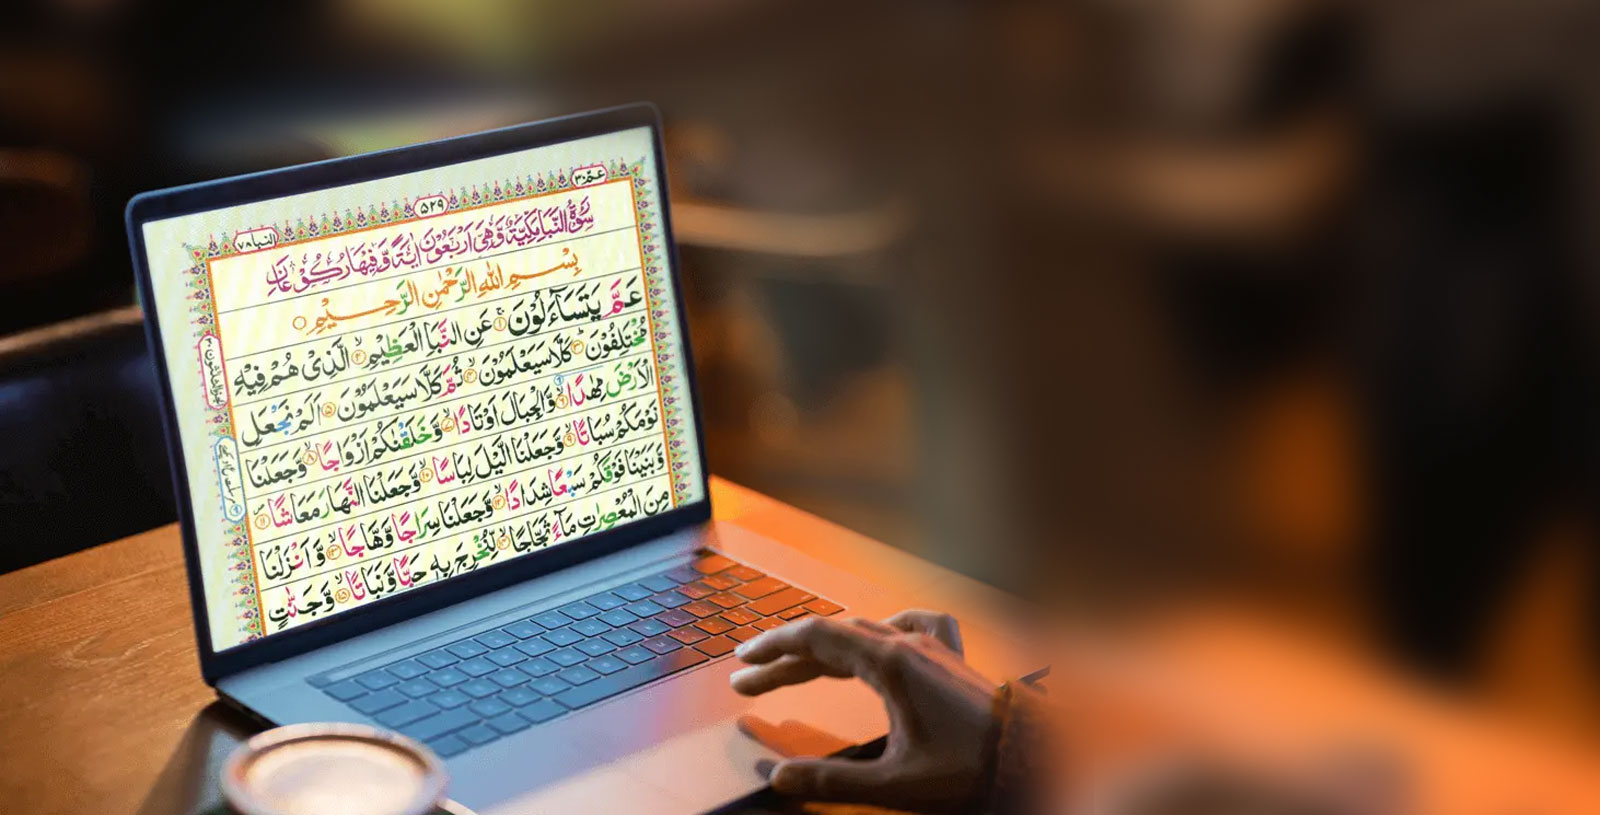 عمّ ٣٠
٥٢٩
النبا ٧٨
سُوْرَةُ النَّبَاِ مَكِّيَّةٌ وَّهِيَ اَرْبَعُوْنَ اٰيَةً وَّفِيْهَا رُكُوْعَانِ
بِسْمِ اللّٰهِ الرَّحْمٰنِ الرَّحِيْمِ ○
عَمَّ يَتَسَآءَلُوْنَ ۚ‏﴿۱﴾ عَنِ النَّبَاِ الْعَظِيْمِ ۙ‏﴿۲﴾ الَّذِىْ هُمْ فِيْهِ
مُخْتَلِفُوْنَ ؕ‏﴿۳﴾ كَلَّا سَيَعْلَمُوْنَ ۙ‏﴿۴﴾ ثُمَّ كَلَّا سَيَعْلَمُوْنَ ﴿۵﴾ اَلَمْ نَجْعَلِ
الْاَرْضَ مِهٰدًا ۙ‏﴿۶﴾ وَّالْجِبَالَ اَوْتَادًا ۙ‏﴿۷﴾ وَّخَلَقْنٰكُمْ اَزْوَاجًا ۙ‏﴿۸﴾ وَّجَعَلْنَا
نَوْمَكُمْ سُبَاتًا ۙ‏﴿۹﴾ وَّجَعَلْنَا الَّيْلَ لِبَاسًا ۙ‏﴿۱۰﴾ وَّجَعَلْنَا النَّهَارَ مَعَاشًا ﴿۱۱﴾
وَّبَنَيْنَا فَوْقَكُمْ سَبْعًا شِدَادًا ۙ‏﴿۱۲﴾ وَّجَعَلْنَا سِرَاجًا وَّهَّاجًا ۙ‏﴿۱۳﴾ وَّاَنْزَلْنَا
مِنَ الْمُعْصِرٰتِ مَآءً ثَجَّاجًا ۙ‏﴿۱۴﴾ لِّنُخْرِجَ بِهٖ حَبًّا وَّنَبَاتًا ۙ‏﴿۱۵﴾ وَّجَنّٰتٍ